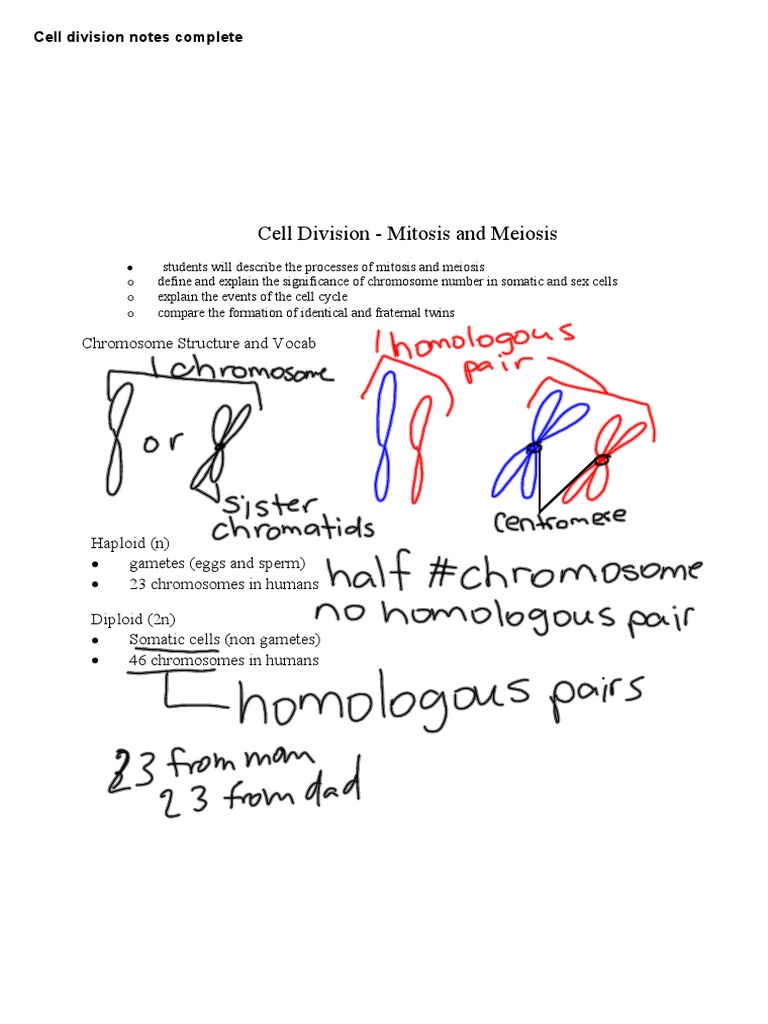 Cell division notes complete
Cell Division - Mitosis and Meiosis
• students will describe the processes of mitosis and meiosis
o define and explain the significance of chromosome number in somatic and sex cells
o explain the events of the cell cycle
o compare the formation of identical and fraternal twins
Chromosome Structure and Vocab
1 chromosome
1 homologous
pair
or
sister
chromatids
centromere
Haploid (n)
• gametes (eggs and sperm)
• 23 chromosomes in humans
half # chromosome
no homologous pair
Diploid (2n)
• Somatic cells (non gametes)
• 46 chromosomes in humans
homologous pairs
23 from mom
23 from dad